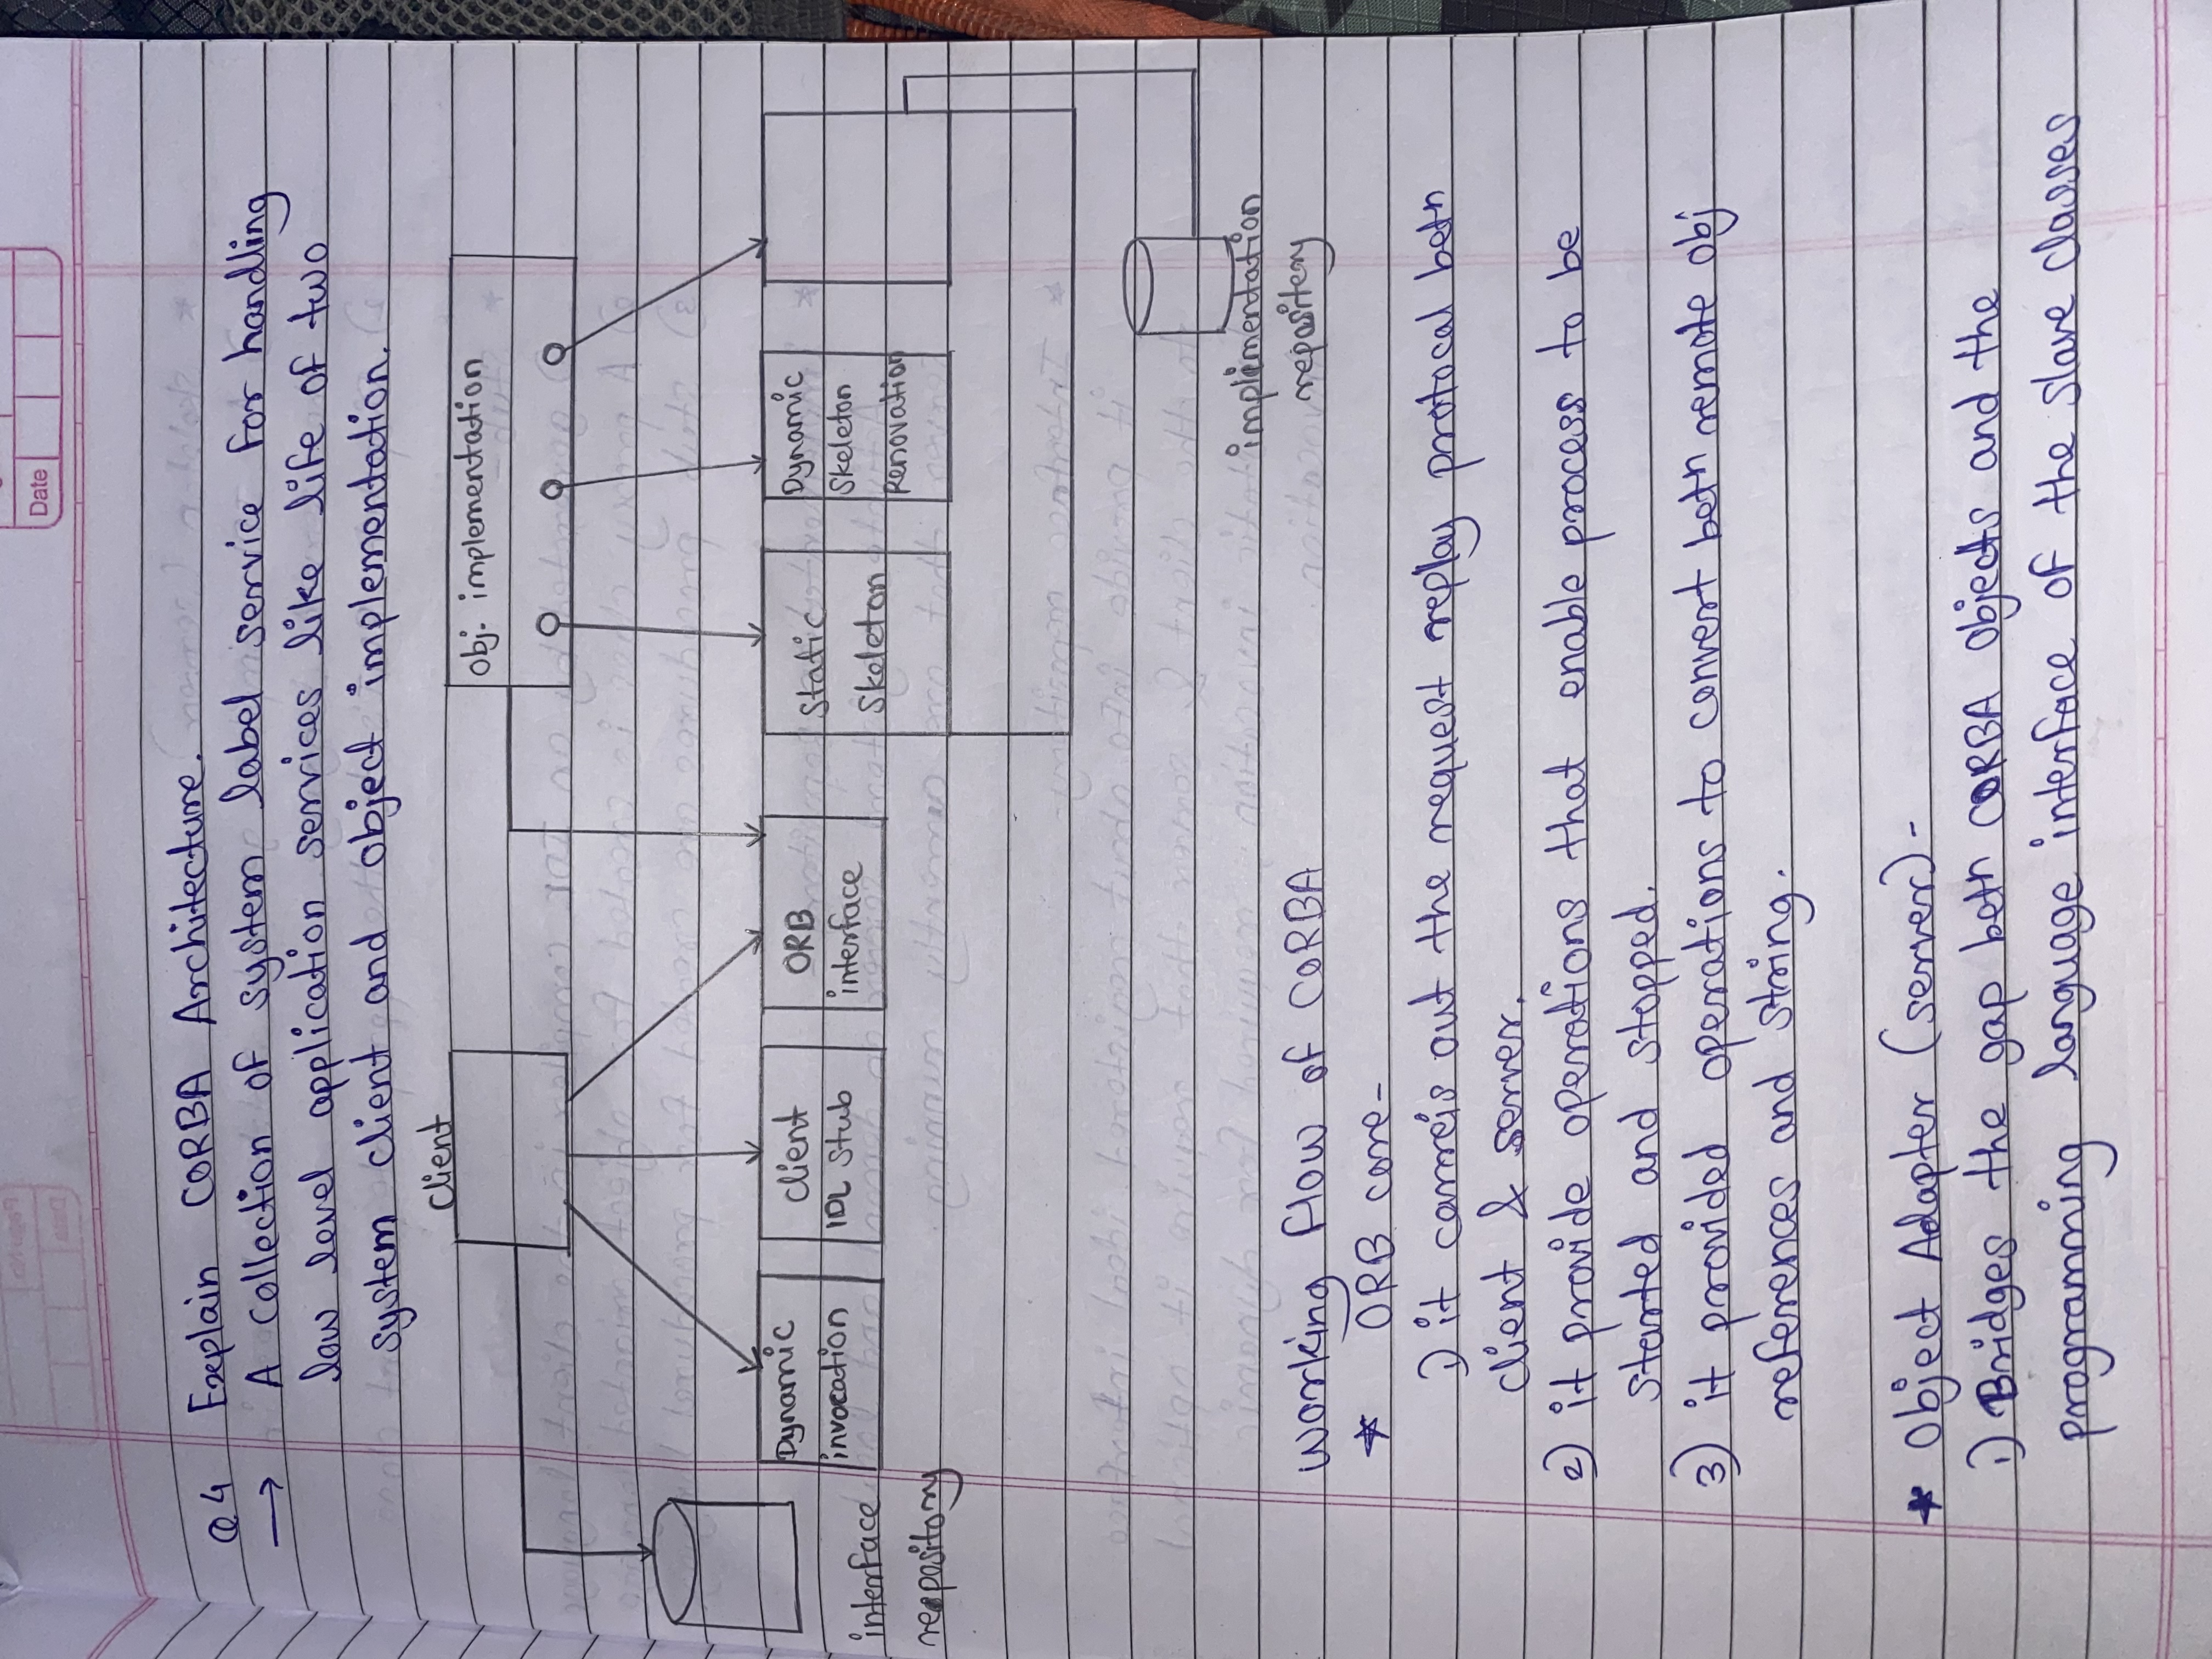 Date
Q4 Explain CORBA Architecture.
→ A collection of system label service for handling
law level application services like life of two
system client and object implementation.
client
Obj. implementation
Dynamic
invocation
client
IDL Stub
ORB
interface
Static
Skeleton
Dynamic
Skeleton
Renovation
interface
repository
implimentation
repositery
Working flow of CORBA
* ORB core-
1) it carreis out the request replay protocal betn
client & server.
2) it provide operations that enable process to be
started and stopped.
3) it provided operations to convert betn remote obj
references and string.
* Object Adapter (server)-
1) Bridges the gap betn CORBA Objects and the
programming language interface of the slave classes